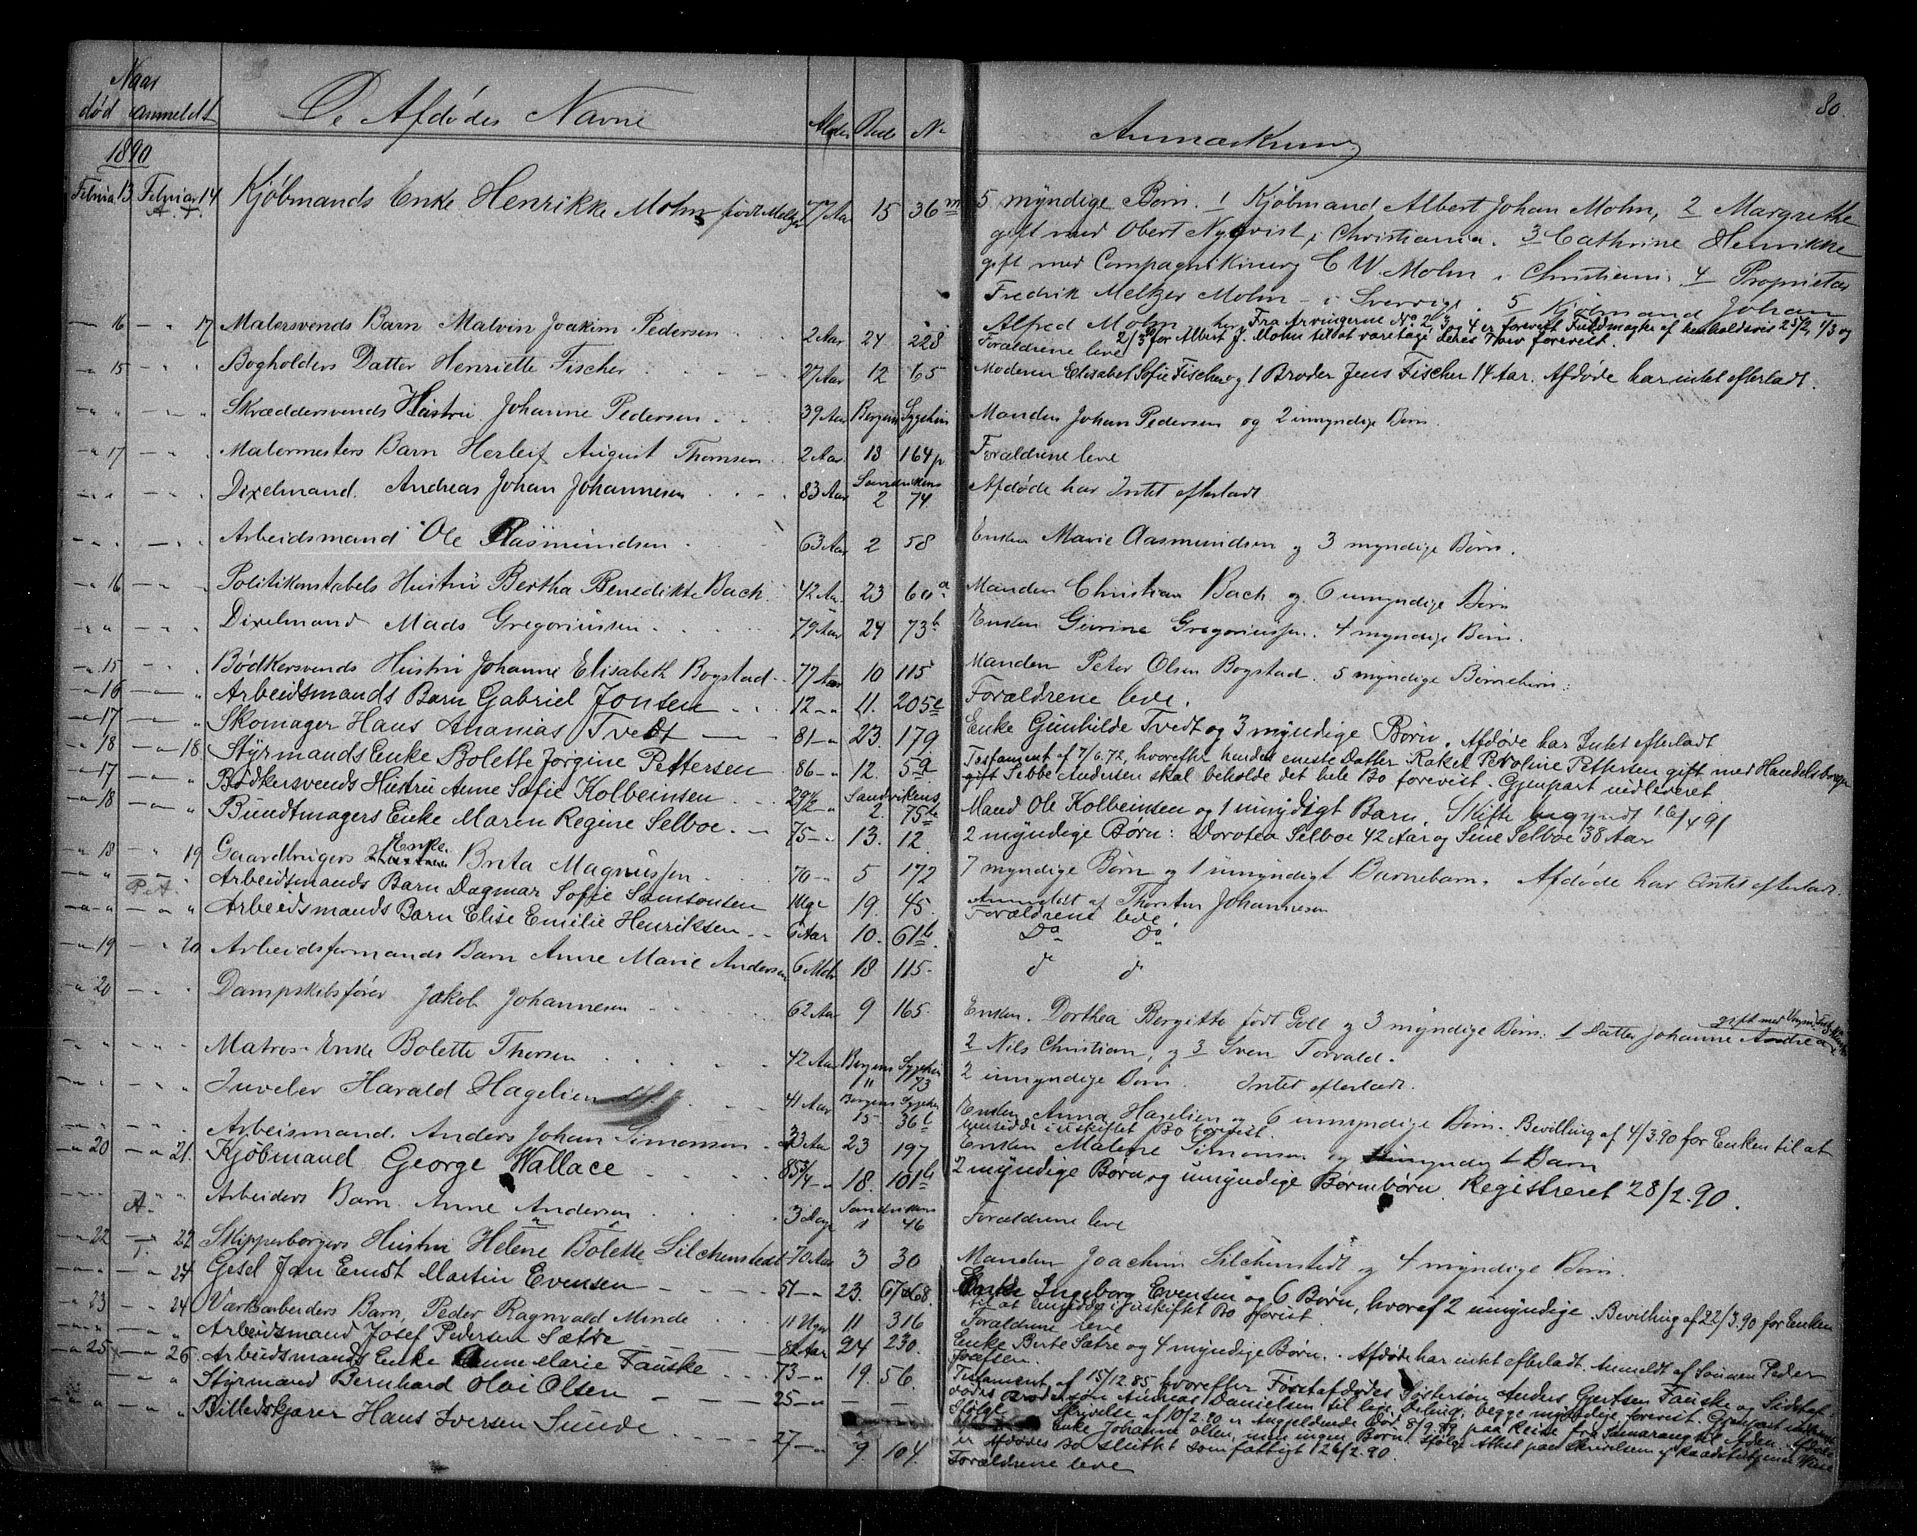 Naar
død anmeldt De Afdødes Navne Alder Rode No Anmærkning 80.
1890
Februar 13 Februar 14 Kjøbmands Enke Henrikke Mohn født Meltzer 77 Aar 15 36 m 5 myndige Børn. 1 Kjøbmand Albert Johan Mohn, 2 Margrethe
A. T. gift med Obert Nyqvist i Christiania. 3 Cathrine Henrikke
gift med C W. Mohn i Christiania. 4 Proprietær
Fredrik Meltzer Mohn - i Sverrige. 5 Kjøbmand Johan
Alfred Mohn her. Fra Arvingerne No 2, 3 og 4 er forevist Fuldmagter af henholdsvis 25/2, 1/3 og
2/3 for Albert J. Mohn til at varetage deres Tarv forevist.
16 17 Malersvends Barn Malvin Joakim Pedersen 2 Aar 24 228 Forældrene leve
15 Bogholders Datter Henriette Fischer 27 Aar 12 65 Moderen Elisabet Sofie Fischer og 1 Broder Jens Fischer 14 Aar. Afdøde har intet efterladt.
Skræddersvends Hustru Johanne Pedersen 39 Aar Bergens Sygehus Manden Johan Pedersen og 2 umyndige Børn.
17 Malermesters Barn Herleif August Thomsen 2 Aar 13 164 p Forældrene leve
Dixelmand Andreas Johan Johannesen 83 Aar Sandvikens 2 74. Afdøde har Intet efterladt
Arbeidsmand Ole Aasmundsen 63 Aar 2 58 Enken Marie Aasmundsen og 3 myndige Børn.
16 Politikonstabels Hustru Bertha Benedikte Bach 42 Aar 23 60 a Manden Christian Bach og 6 umyndige Børn
Dixelmand Mads Gregoriussen 79 Aar 24 73 b Enken Gurine Gregoriussen. 4 myndige Børn.
15 Bødkersvends Hustru Johanne Elisabeth Bogstad 77 Aar 10 115 Manden Peter Olsen Bogstad. 5 myndige Børnebørn.
16 Arbeidsmands Barn Gabriel Jonsen 12 11. 205 e Forældrene leve.
17 Skomager Hans Ananias Tvedt 81 23. 179 Enke Gunhilde Tvedt og 3 myndige Børn. Afdøde har Intet efterladt
18 18 Styrmands Enke Bolette Jørgine Pettersen 86 12. 5 a Testament af 7/6.72, hvorefter hendes eneste Datter Rakel Pettersen gift med Handelsborger
17 Bødkersvends Hustru Anne Sofie Kolbeinsen 29 1/2 Sandvikens 2. 75 gift Tebbe Andersen skal beholde det hele Bo forevist. Gjenpart nedleveret
Mand Ole Kolbeinsen og 1 umyndigt Barn. Skifte begyndt 16/4 91
18 Bundtmagers Enke Maren Regine Selboe 75 13. 12. 2 myndige Børn: Dorotea Selboe 42 Aar og Sine Selboe 38 Aar
18 19 Gaardbrugers Enke Brita Magnussen 70 5 172 7 myndige Børn og 1 umyndigt Barnebarn. Afdøde har Intet efterladt
P. A. Arbeidsmands Barn Dagmar Sofie Samsonsen 19. 45. Anmeldt af Thorsten Johannesen
Forældrene leve
Arbeidsmands Barn Elise Emilie Henriksen 6 Aar 10. 61 b Do Do
19 20 Arbeidsformands Barn Anne Marie Andersen 6 Mdr 18 115. d d
20 Dampskibsfører Jakob Johannesen 62 Aar 9 165. Enken. Dorthea Bergitte født Goll og 3 myndige Børn: 1 Datter Johanne Andrea gift med
2 Nils Christian, og 3 Sven Torvald.
Matros-Enke Bolette Thorsen 42 Aar Bergens Sygehus 11 73 2 umyndige Børn. Intet efterladt.
Juveler Harald Hagelien 41 Aar Bergens Sygehus 15 36 b Enken Anna Hagelien og 6 umyndige Børn. Bevilling af 4/3.90 for Enken til at
hensidde i uskiftet Bo forevist.
Arbeismand. Anders Johan Simonsen Aar 23 197 Enken Malene Simonsen og umyndigt Barn
20 21. Kjøbmand George Wallace 85 3/4 18. 101 b 2 myndige Børn og umyndige Børnebørn. Registreret 28/2.90.
A. Arbeiders Barn Anne Andersen 3 Dage Sandvikens 1 46 Forældrene leve
22 22 T. Skipperborgers Hustru Helene Bolette Silchenstedt 70 Aar 3 30 Manden Joachim Silchenstedt og 4 myndige Børn.
24 Gesel Jan Ernst Martin Evensen 51 23. 67 68. Enke Ingeborg Evensen og 6 Børn, hvoraf 2 umyndige. Bevilling af 22/3.90 for Enken
til at hensidde i uskiftet Bo forevist.
23 24 Værksarbeiders Barn, Peder Ragnvald Minde 11 Uger 11 316 Forældrene leve
Arbeidsmand Josef Pedersen Sætre 82 Aar 24 230. Enke Berte Sætre og 4 myndige Børn. Afdøde har intet efterladt. Anmeldt af Sønnen Peder
Josefsen.
25 26. Arbeidsmands Enke Anne Marie Fauske 73 19. 56 Testament af 15/12.85 hvorefter Førstafdødes Søstersøn Anders Gjertsen Fauske og Sidstaf-
dødes Andreas Danielsen til lige Deling, begge myndige, forevist.
Styrmand Bernhard Olai Olsen 25 Ifølge Skrivelse af 10/2.90 er Angjeldende død 8/9.89 paa Reise fra Samarang til
Enke Johanne Olsen, men ingen Børn.
er Afdødes Bo sluttet som fattigt 26/2.90.
Billedskjærer Hans Iversen Sunde 27 9. 104. Forældrene leve